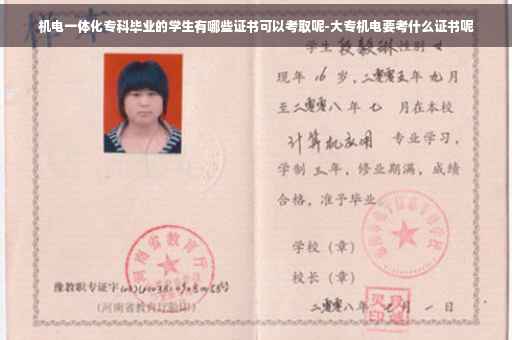 机电一体化专科毕业的学生有哪些证书可以考取呢-大专机电要考什么证书呢
学生段毅琳性别女
现年16岁,二零零五年九月
至二零零八年七月在本校
计算机应用专业学习,
学制三年,修业期满,成绩
合格,准予毕业
河南省教育厅
学校(章)
校长(章)
豫教职专证字
(河南省教育厅验印)
二零零八年七月一日